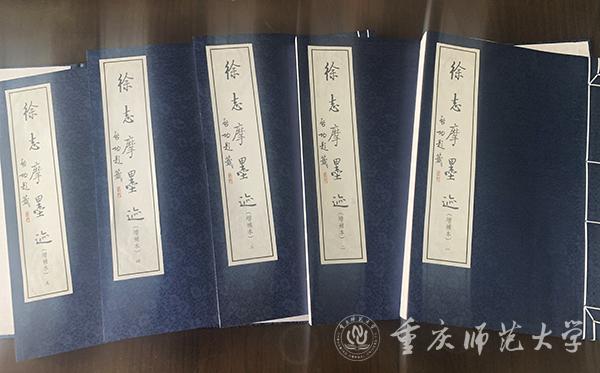 徐志摩墨迹
（增補本）一
启功题籤
徐志摩墨迹
（增補本）二
启功题籤
徐志摩墨迹
（增補本）三
启功题籤
徐志摩墨迹
（增補本）四
启功题籤
徐志摩墨迹
（增補本）五
启功题籤
重庆师范大学